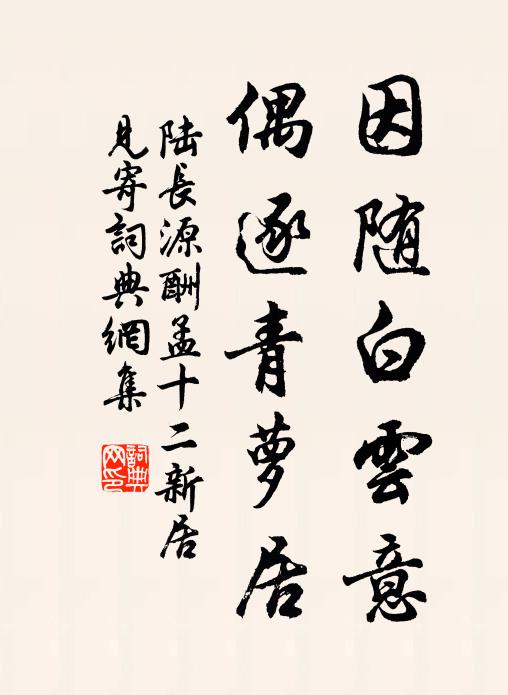 因随白雲意
偶逐青萝居
陸長源酬孟十二新居
見寄詞典網集
詞典
网印